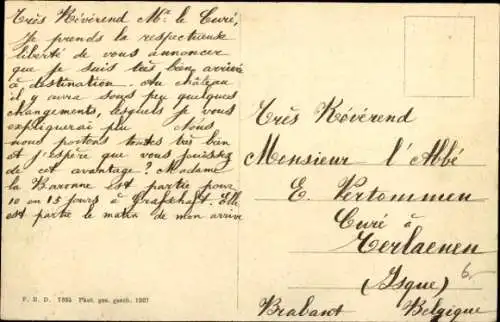 Très Révérend Mr le Curé,
Je prends la respectueuse
liberté de vous annoncer
que je suis très bien arrivée
à destination. Au château
il y aura sous peu quelques
changements, lesquels je vous
expliquerai plu
nous portons toutes très bien
et j'espère que vous jouissez
de cet avantage? Madame
la Baronne est partie pour
10 ou 15 jours à Grafschaft. Elle
est partie le matin de mon arrivé
Très Révérend
Monsieur l'Abbé
E. Vertommen
Curé à
Terlaenen
(Isque)
Brabant Belgique
P. B. D. 7895 Phot. ges. gesch. 1907